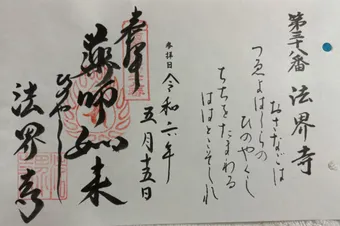 第三十八番 法界寺
おさなごは
つゑよはしらの
ひのやくし
ちちをたまわる
ははとこそしれ
令和六年
五月十五日
奉拝
薬師如来
ひのやくし
法界寺